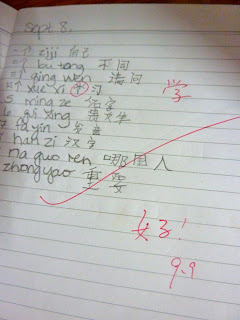 sept 8,
一个 ziji 自己
二个 bu tong 不同
三个 qing wen 请问
四个 xue xi 学习 学
5 ming zi 名字
6 gui xing 贵姓
7 fa yin 发音
han zi 汉字
na guo ren 哪国人
zhongyao 重要
好!
9.9